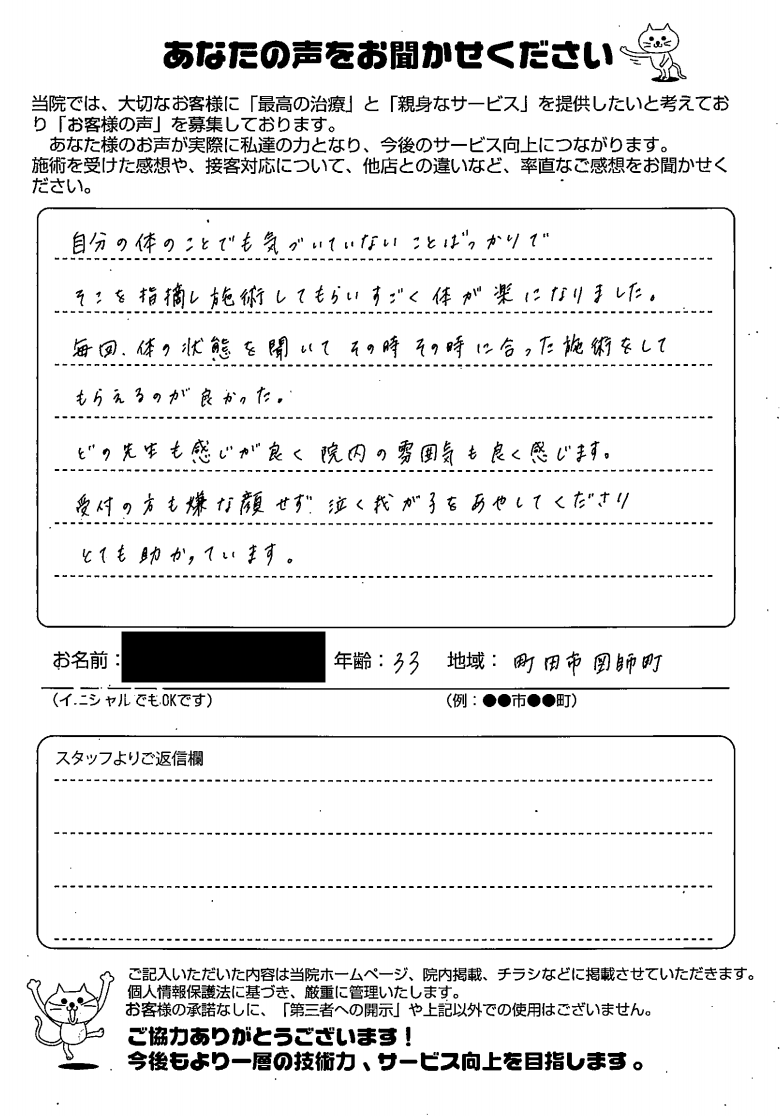 あなたの声をお聞かせください
当院では、大切なお客様に「最高の治療」と「親身なサービス」を提供したいと考えてお
り「お客様の声」を募集しております。
あなた様のお声が実際に私達の力となり、今後のサービス向上につながります。
施術を受けた感想や、接客対応について、他店との違いなど、率直なご感想をお聞かせく
ださい。
自分の体のことでも気づいていないことばっかりで
そこを指摘し施術してもらいすごく体が楽になりました。
毎回、体の状態を聞いてその時その時に合った施術をして
もらえるのが良かった。
どの先生も感じが良く院内の雰囲気も良く感じます。
受付の方も嫌な顔せず泣く我が子をあやしてくださり
とても助かっています。
お名前： 年齢：33 地域：町田市図師町
（イニシャルでもOKです） （例：●●市●●町）
スタッフよりご返信欄
ご記入いただいた内容は当院ホームページ、院内掲載、チラシなどに掲載させていただきます。
個人情報保護法に基づき、厳重に管理いたします。
お客様の承諾なしに、「第三者への開示」や上記以外での使用はございません。
ご協力ありがとうございます！
今後もより一層の技術力、サービス向上を目指します。